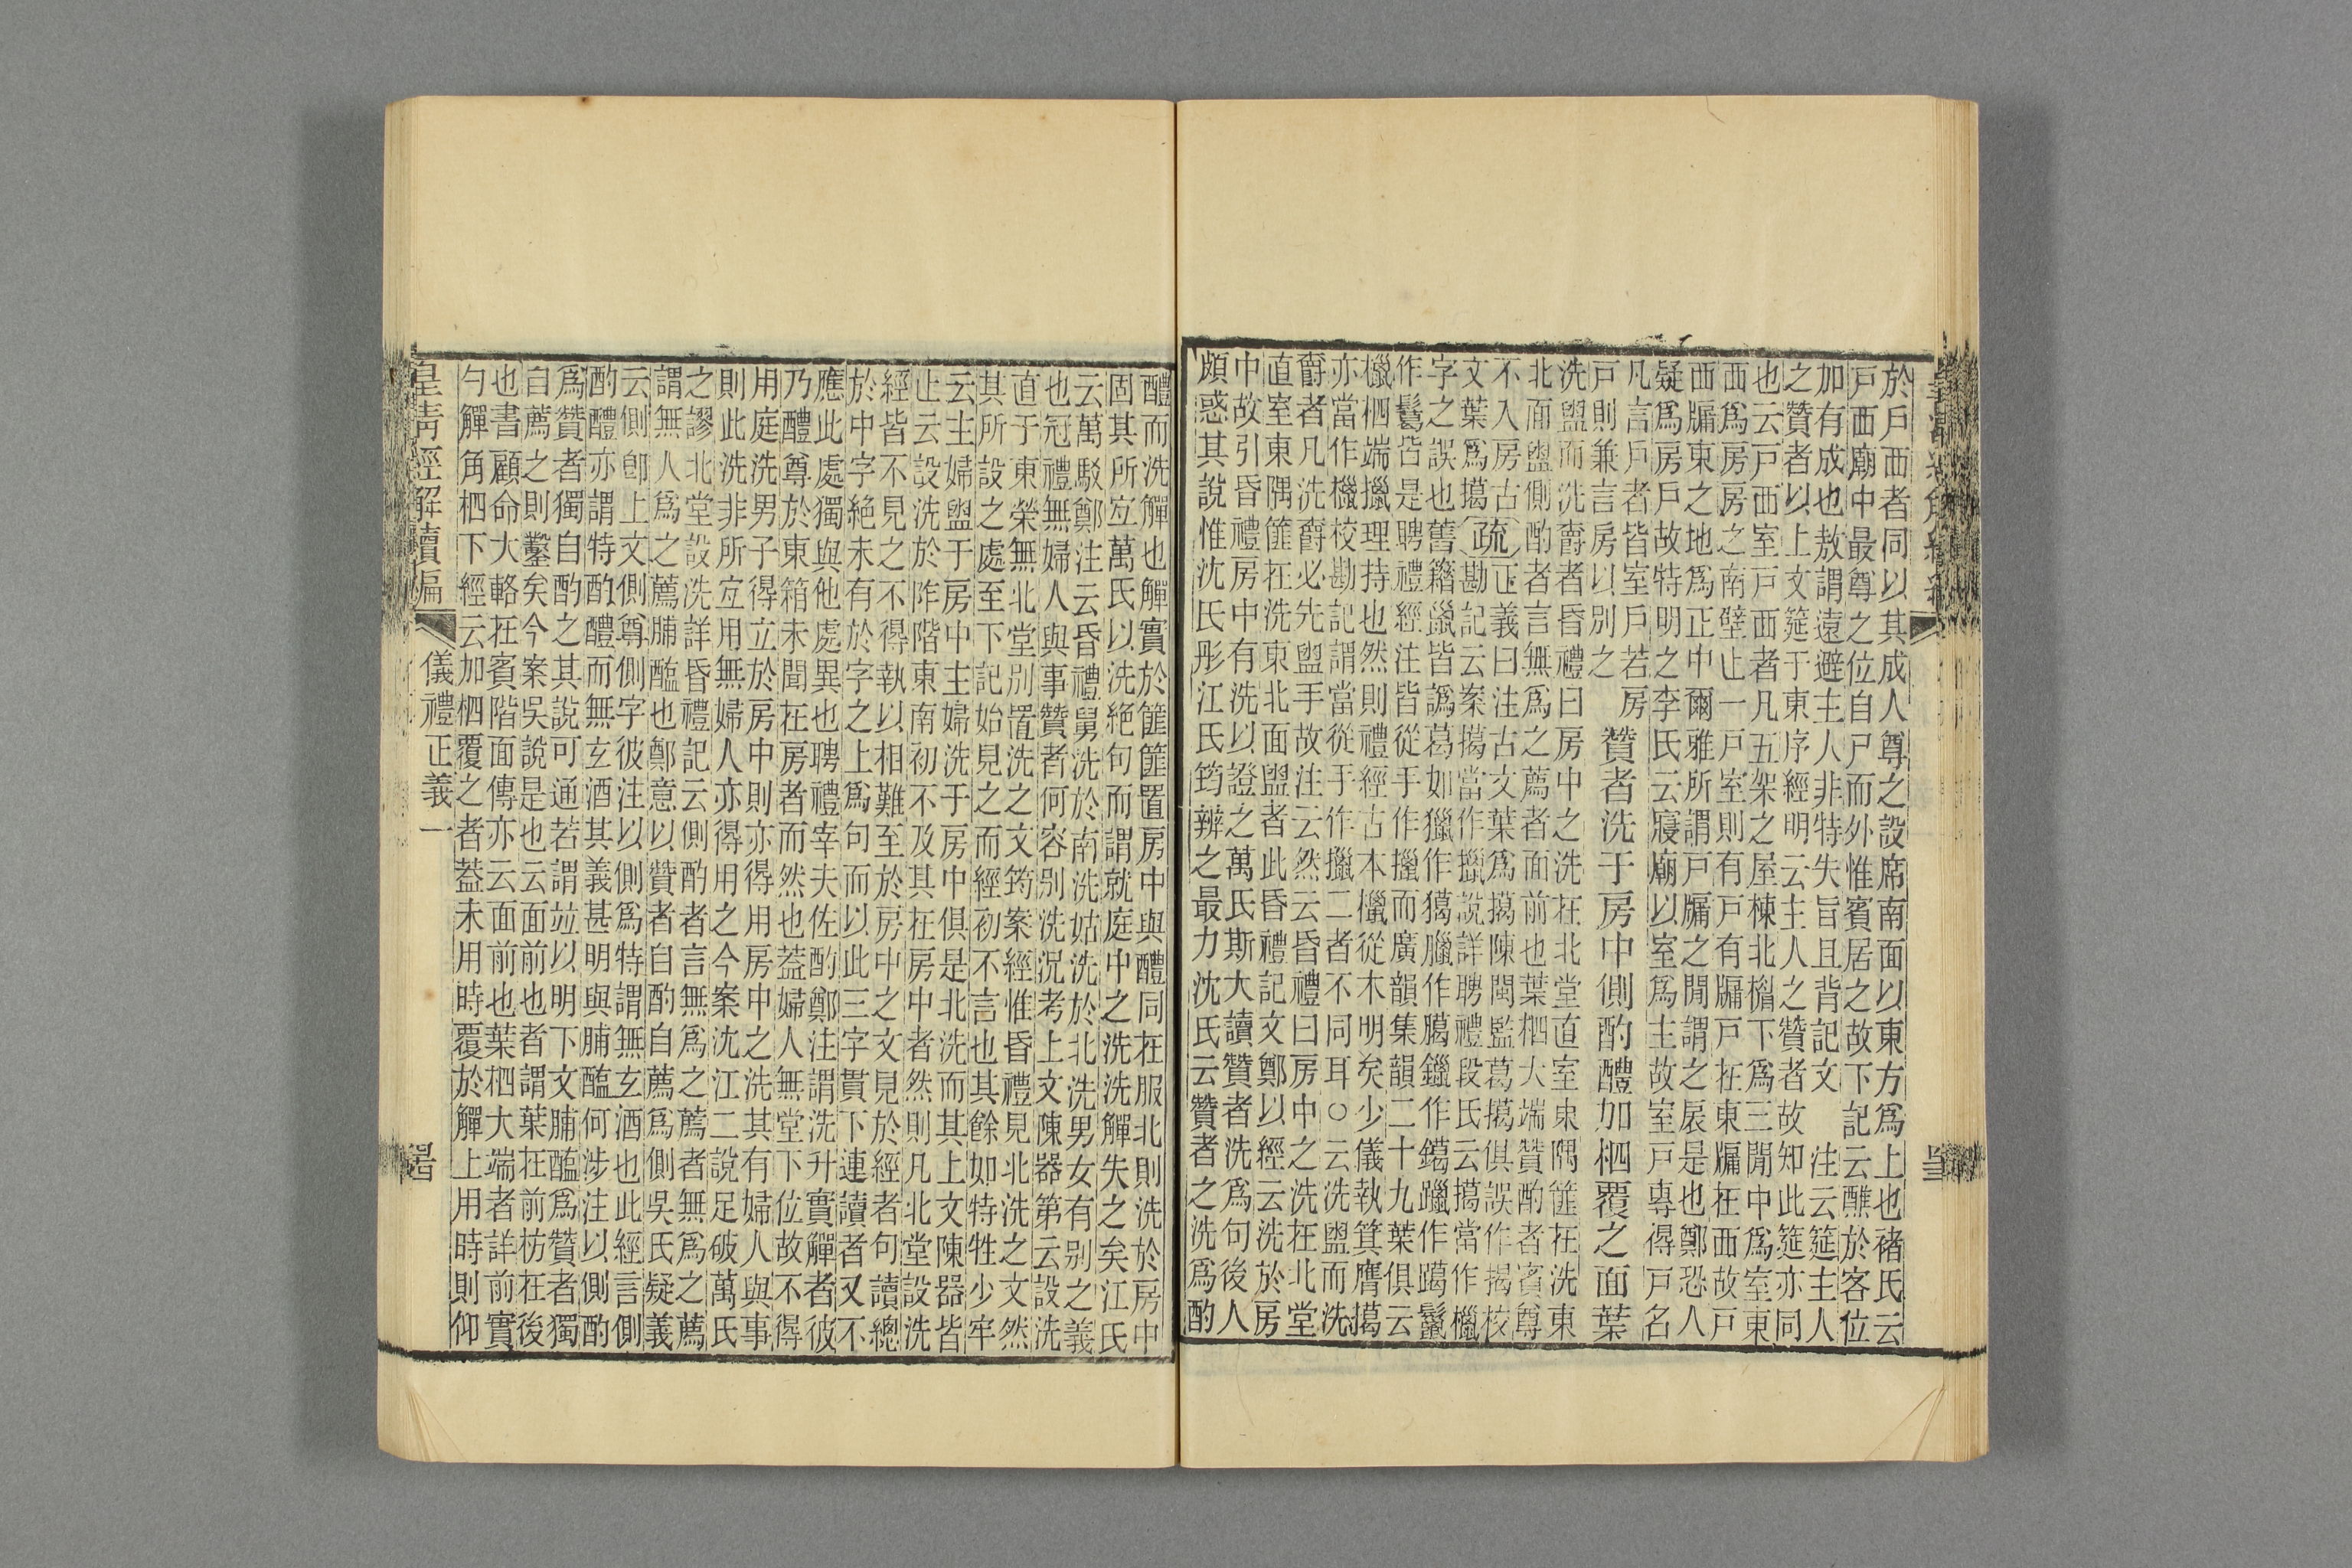 於戶西者同以其成人尊之設席南面以東方爲上也褚氏云
戶西廟中最尊之位自尸而外惟賓居之故下記云醮於客位
加有成也敖謂遠避主人非特失旨且背記文　注云筵主人
之贊者以上文筵于東序經明云主人之贊者故知此筵亦同
也云戶西室戶西者凡五架之屋棟北楣下爲三閒中爲室東
西爲房房之南壁止一戶室則有戶有牖戶在東牖在西故戶
西牖東之地爲正中爾雅所謂戶牖之閒謂之扆是也鄭恐人
疑爲房戶故特明之李氏云寢廟以室爲主故室戶專得戶名
凡言戶者皆室戶若房
戶則兼言房以別之
贊者洗于房中側酌醴加柶覆之面葉
洗盥而洗爵者昏禮曰房中之洗在北堂直室東隅篚在洗東
北面盥側酌者言無爲之薦者面前也葉柶大端贊酌者賓尊
不入房古
文葉爲擖
疏
正義曰注古文葉爲擖陳閩監葛擖俱誤作揭校
勘記云案擖當作擸說詳聘禮段氏云擖當作㯿
字之誤也舊籍巤皆譌葛如獵作獦臘作臈鑞作鎑躐作蹋鬣
作皆是聘禮經注皆從手作擸而廣韻集韻二十九葉俱云
㯿柶端擸理持也然則禮經古本㯿從木明矣少儀執箕膺擖
亦當作㯿校勘記謂當從手作擸二者不同耳○云洗盥而洗
爵者凡洗爵必先盥手故注云然云昏禮曰房中之洗在北堂
直室東隅篚在洗東北面盥者此昏禮記文鄭以經云洗於房
中故引昏禮房中有洗以證之萬氏斯大讀贊者洗爲句後人
頗惑其說惟沈氏彤江氏筠辨之最力沈氏云贊者之洗爲酌
醴而洗觶也觶實於篚篚置房中與醴同在服北則洗於房中
固其所宐萬氏以洗絕句而謂就庭中之洗洗觶失之矣江氏
云萬駁鄭注云昏禮舅洗於南洗姑洗於北洗男女有別之義
也冠禮無婦人與事贊者何容別洗況考上文陳器第云設洗
直于東榮無北堂別置洗之文筠案經惟昏禮見北洗之文然
其所設之處至下記始見之而經初不言也其餘如特牲少牢
云主婦盥于房中主婦洗于房中俱是北洗而其上文陳器皆
止云設洗於阼階東南初不及其在房中者然則凡北堂設洗
經皆不見之不得執以相難至於房中之文見於經者句讀總
於中字絕未有於字之上爲句而以此三字貫下連讀者又不
應此處獨與他處異也聘禮宰夫佐酌鄭注謂洗升實觶者彼
乃醴尊於東箱未聞在房者而然也葢婦人無堂下位故不得
用庭洗男子得立於房中則亦得用房中之洗其有婦人與事
則此洗非所宐用無婦人亦得用之今案沈江二說足破萬氏
之謬北堂設洗詳昏禮記云側酌者言無爲之薦者無爲之薦
謂無人爲之薦脯醢也鄭意以贊者自酌自薦爲側吳氏疑義
云側卽上文側尊側字彼注以側爲特謂無玄酒也此經言側
酌醴亦謂特酌醴而無玄酒其義甚明與脯醢何涉注以側酌
爲贊者獨自酌之其說可通若謂竝以明下文脯醢爲贊者獨
自薦之則鑿矣今案吳說是也云面前也者謂葉在前枋在後
也書顧命大輅在賓階面傳亦云面前也葉柶大端者詳前實
勺觶角柶下經云加柶覆之者葢未用時覆於觶上用時則仰
皇淸經解續編
儀禮正義一